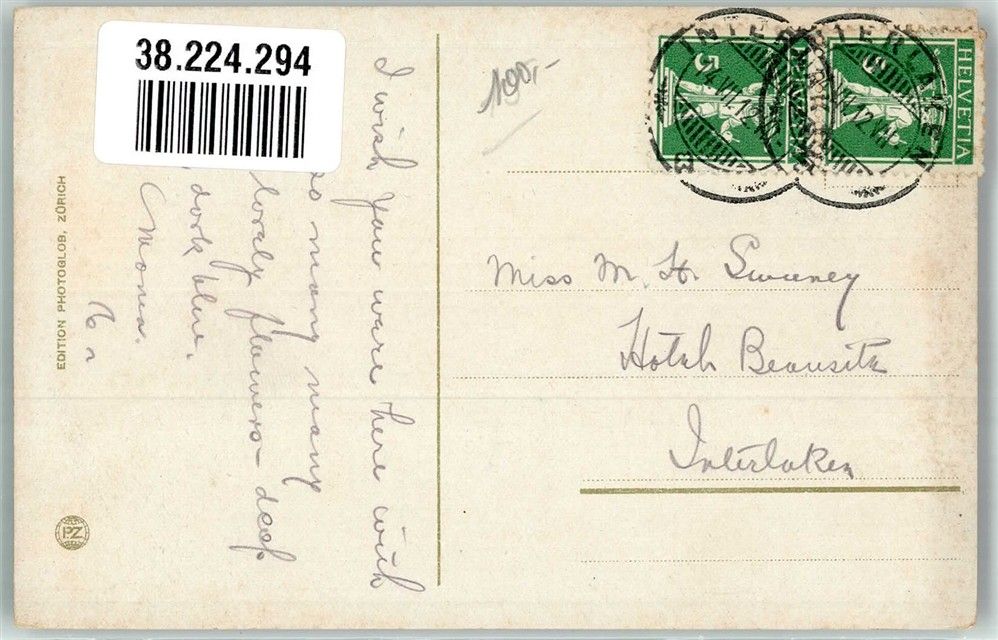 38.224.294
I wish you were here with
us many many
lovely flowers - deep
dark blue.
EDITION PHOTOGLOB, ZÜRICH
PZ
190,-
5
5
HELVETIA
INTERLAKEN
Miss M. H. Swuney
Hotel Beausite
Interlaken